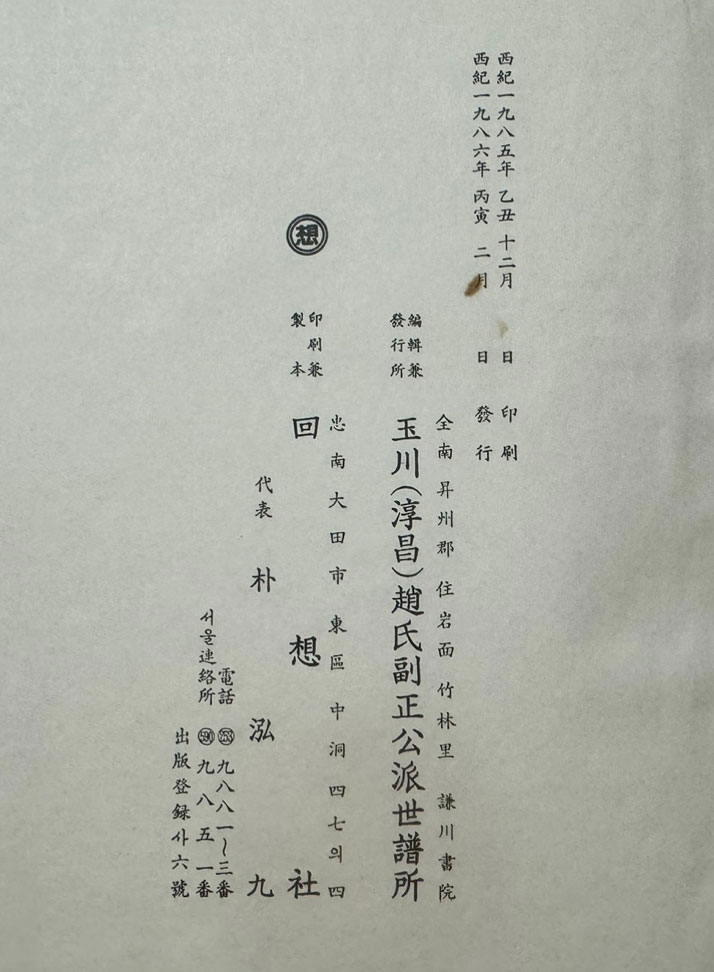 西紀一九八五年 乙丑 十二月 日 印刷
西紀一九八六年 丙寅 二月 日 發行
全南昇州郡 住岩面 竹林里 謙川書院
編輯兼
發行所
玉川(淳昌)趙氏副正公派世譜所
忠南大田市 東區 中洞 四七의四
印刷兼
製本
想
回想社
代表 朴泓九
電話 253 九八八一~三番
서울連絡所 590 九八五一番
出版登録 사六號